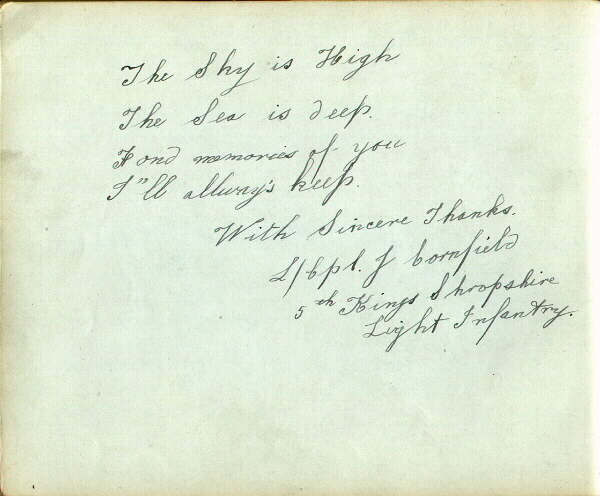 The Sky is High
The Sea is deep.
Fond memories of you
I"ll allway's keep.
With Sincere Thanks.
L/Cpl. J Cornfield
5th Kings Shropshire
Light Infantry.